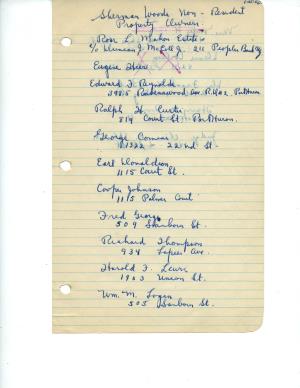 Sherman Woods Non-Resident
Property Owners.
Rose L. Mahon Estate
c/o Duncan J. McColl Jr. 211 Peoples Bank Bldg
Eugene
Edward F. Reynolds
3985 Ravenswood Rd. R.1, Pt. Huron
Ralph H. Curtis
814 Court St. Port Huron.
George
1322 - 22nd St.
Earl Donaldson
1115 Court St.
Cooper Johnson
1115 Palmer Court
Fred George
509 Sanborn St.
Richard Thompson
934 Lapeer Ave.
Harold F. Lewis
1903 Union St.
Wm. M. Logan
505 Sanborn St.